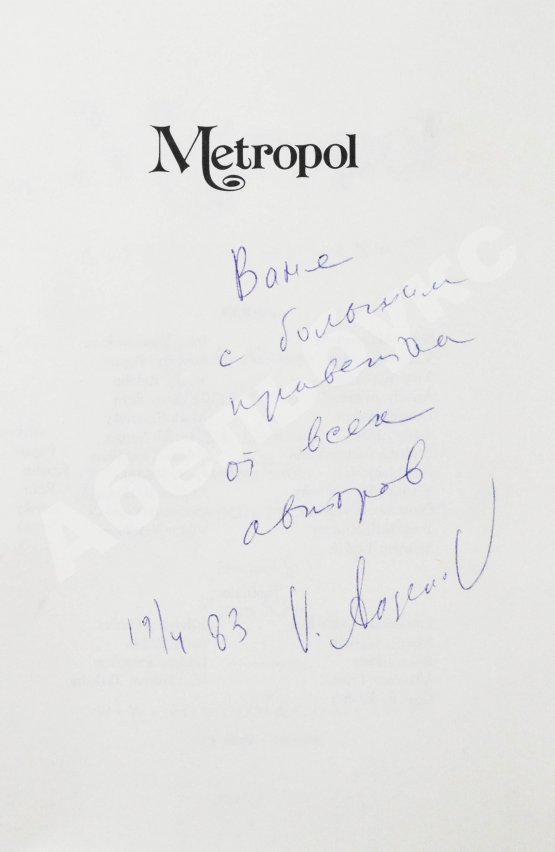 Metropol
Ване
с большим
приветом
от всех
авторов
19/4 83 V. Аксенов
Абельбукс